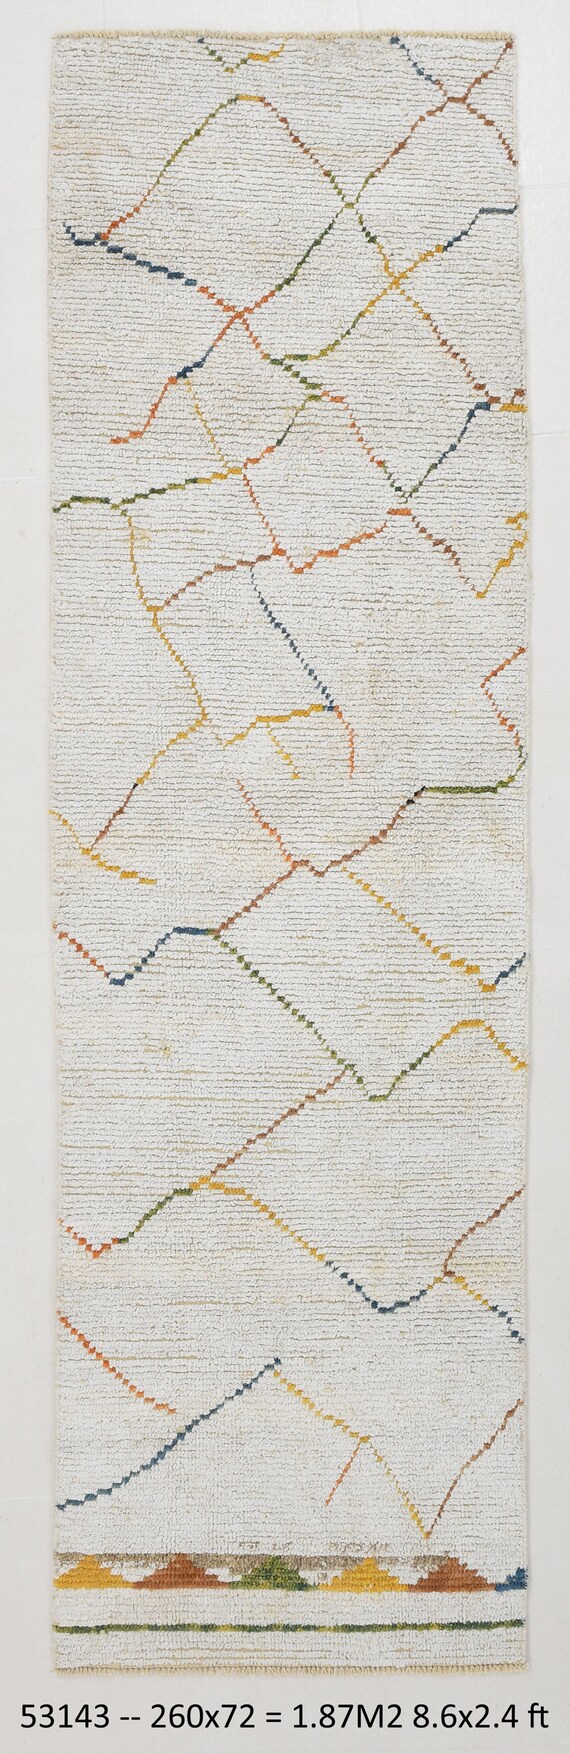 53143 -- 260x72 = 1.87M2 8.6x2.4 ft